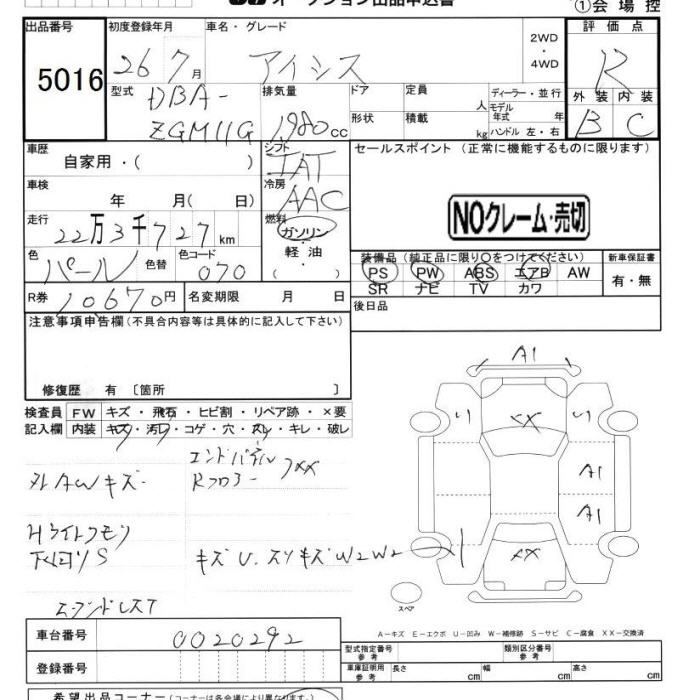 オークション出品申込書
①会場控
出品番号 初度登録年月 車名・グレード 評価点
5016 26 7月 アイシス 2WD・4WD R
型式 排気量 ドア 定員 人 ディーラー・並行 外装 内装
DBA-ZGM11G 1980cc 形状 積載 kg モデル年式 年 ハンドル 左・右 B C
車歴 自家用・( ) シフト IAT セールスポイント (正常に機能するものに限ります)
車検 年 月( 日) 冷房 AAC
走行 22万3千727km 燃料 ガソリン・軽油・( ) NOクレーム・売切
色 パール 色替 色コード 070 装備品 (純正品に限り○をつけてください) 新車保証書
PS PW ABS エアB AW 有・無
SR ナビ TV カワ
R券 10670円 名変期限 月 日 後日品
注意事項申告欄 (不具合内容等は具体的に記入して下さい)
修復歴 有 〔箇所 〕
検査員 FW キズ・飛石・ヒビ割・リペア跡・×要
記入欄 内装 キズ・汚レ・コゲ・穴・スレ・キレ・破レ
外AWキズ
Hライトクモリ
下回りS
キズU.スリキズW2W2
A1
XX
A1
A1
XX
スペア
A-キズ E-エクボ U-凹み W-補修跡 S-サビ C-腐食 XX-交換済
車台番号 0020292 型式指定番号 参考 類別区分番号 参考
登録番号 車庫証明用 参考 長さ cm 幅 cm 高さ cm
希望出品コーナー(コーナーは各会場により異なります。)